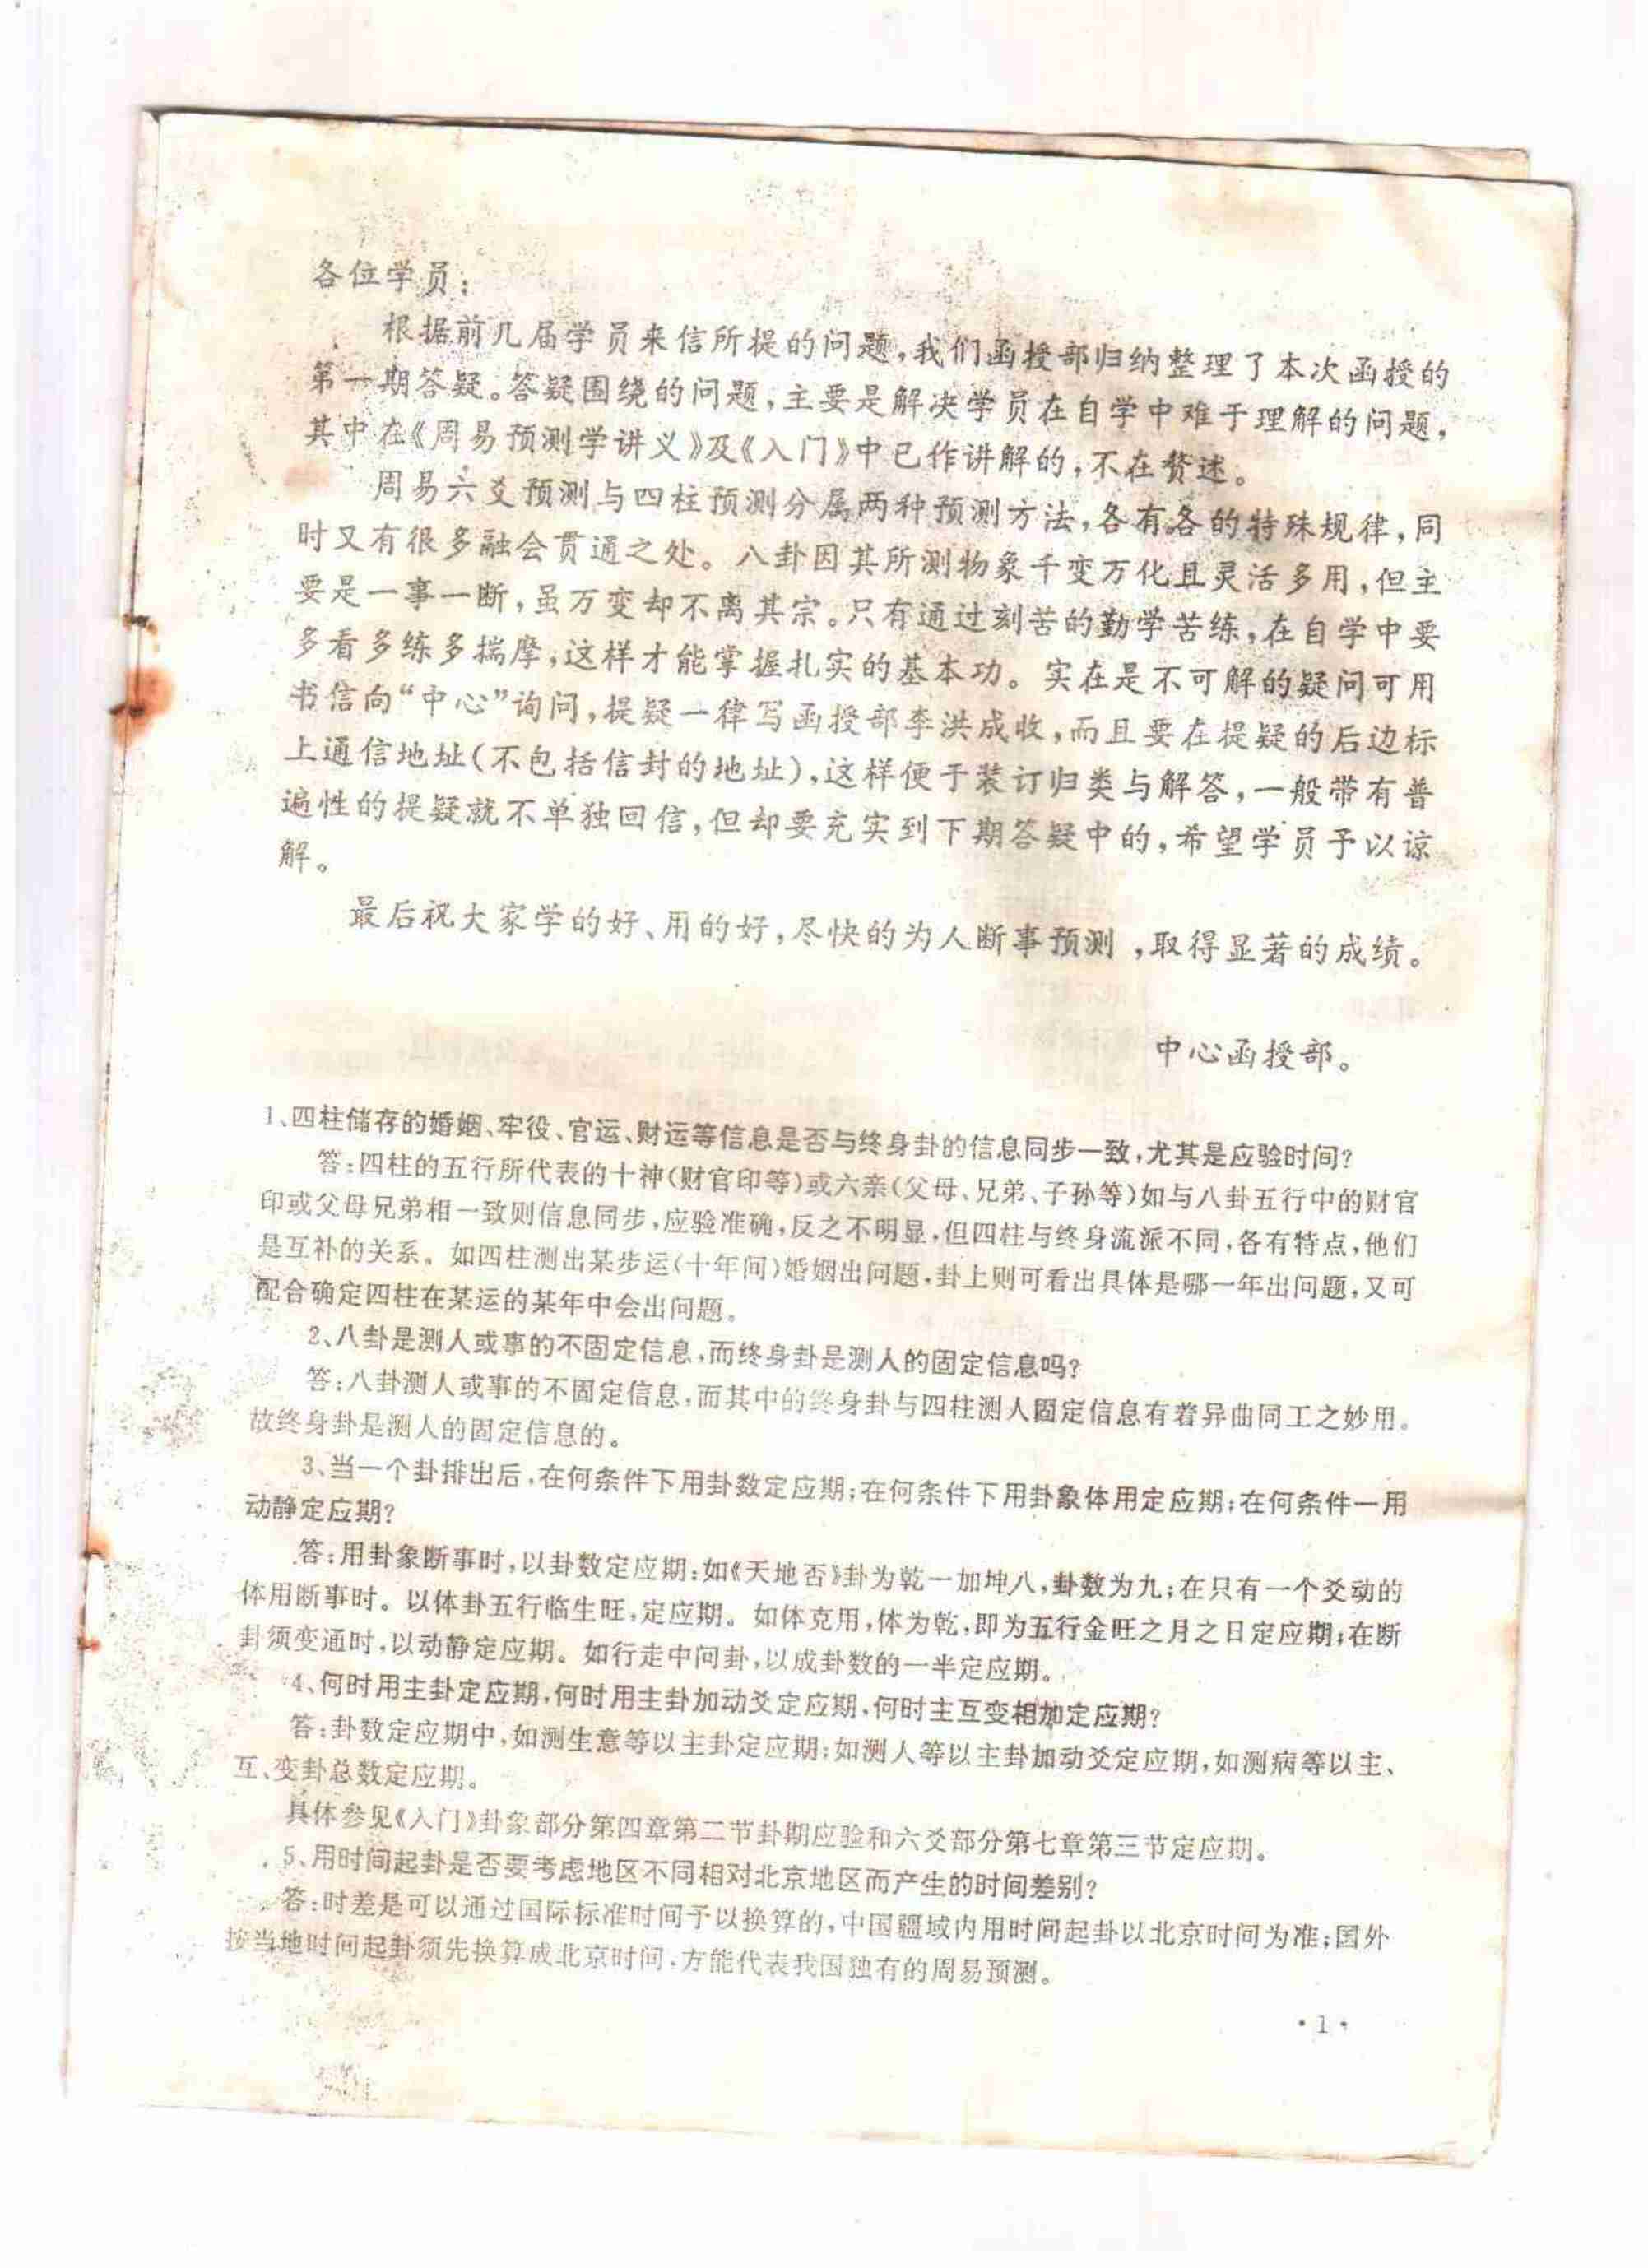 各位学员：
根据前几届学员来信所提的问题，我们函授部归纳整理了本次函授的
第一期答疑。答疑围绕的问题，主要是解决学员在自学中难于理解的问题，
其中在《周易预测学讲义》及《入门》中已作讲解的，不在赘述。
周易六爻预测与四柱预测分属两种预测方法，各有各的特殊规律，同
时又有很多融会贯通之处。八卦因其所测物象千变万化且灵活多用，但主
要是一事一断，虽万变却不离其宗。只有通过刻苦的勤学苦练，在自学中要
多看多练多揣摩，这样才能掌握扎实的基本功。实在是不可解的疑问可用
书信向“中心”询问，提疑一律写函授部李洪成收，而且要在提疑的后边标
上通信地址（不包括信封的地址），这样便于装订归类与解答，一般带有普
遍性的提疑就不单独回信，但却要充实到下期答疑中的，希望学员予以谅
解。
最后祝大家学的好、用的好，尽快的为人断事预测，取得显著的成绩。
中心函授部。
1、四柱储存的婚姻、牢役、官运、财运等信息是否与终身卦的信息同步一致，尤其是应验时间？
答：四柱的五行所代表的十神（财官印等）或六亲（父母、兄弟、子孙等）如与八卦五行中的财官
印或父母兄弟相一致则信息同步，应验准确，反之不明显，但四柱与终身流派不同，各有特点，他们
是互补的关系。如四柱测出某步运（十年间）婚姻出问题，卦上则可看出具体是哪一年出问题，又可
配合确定四柱在某运的某年中会出问题。
2、八卦是测人或事的不固定信息，而终身卦是测人的固定信息吗？
答：八卦测人或事的不固定信息，而其中的终身卦与四柱测人固定信息有着异曲同工之妙用。
故终身卦是测人的固定信息的。
3、当一个卦排出后，在何条件下用卦数定应期；在何条件下用卦象体用定应期；在何条件一用
动静定应期？
答：用卦象断事时，以卦数定应期：如《天地否》卦为乾一加坤八，卦数为九；在只有一个爻动的
体用断事时。以体卦五行临生旺，定应期。如体克用，体为乾，即为五行金旺之月之日定应期；在断
卦须变通时，以动静定应期。如行走中问卦，以成卦数的一半定应期。
4、何时用主卦定应期，何时用主卦加动爻定应期，何时主互变相加定应期？
答：卦数定应期中，如测生意等以主卦定应期；如测人等以主卦加动爻定应期，如测病等以主、
互、变卦总数定应期。
具体参见《入门》卦象部分第四章第二节卦期应验和六爻部分第七章第三节定应期。
5、用时间起卦是否要考虑地区不同相对北京地区而产生的时间差别？
答：时差是可以通过国际标准时间予以换算的，中国疆域内用时间起卦以北京时间为准；国外
按当地时间起卦须先换算成北京时间，方能代表我国独有的周易预测。
·1·